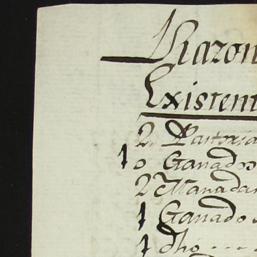 Razon
Existent
2 Partida
10 Ganados
2 Manadas
1 Ganado
1 dho ---